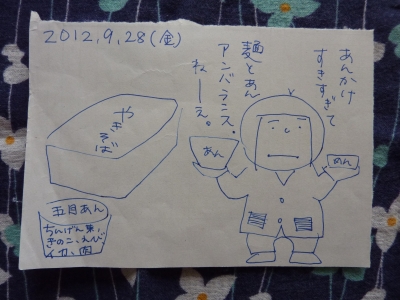 2012.9.28(金)
あんかけ
すきすぎて
麺とあん
アンバランス。
ねーえ。
あん
めん
やき
そば
五目あん
ちんげん菜、
きのこ、えび
イカ、肉